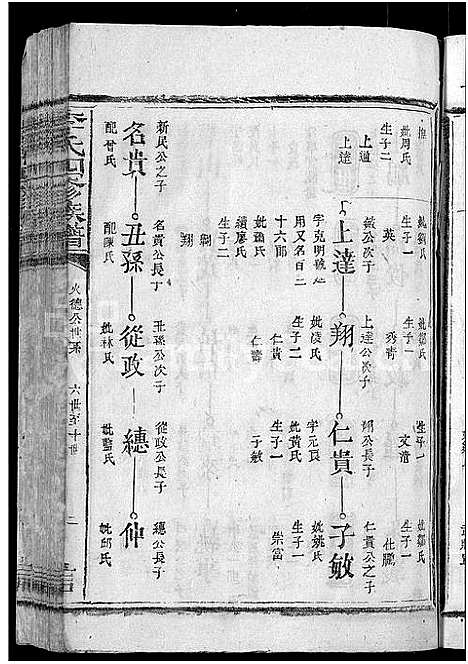 妣周氏
生子二
上通
上達
妣劉氏
生子一
英
妣鄒氏
生子一
秀青
生子一
文清
妣鄒氏
生子一
仕鵬
上達
公次子
字克明
用又名二
十六郎
妣蕭氏
續廖氏
生子二
翔
翔
上達公次子
妣凌氏
生子二
仁貴
仁壽
仁貴
翔公長子
字元良
妣黃氏
生子一
子敏
子敏
仁貴公之子
妣姚氏
生子一
崇富
名貴
新民公之子
配曾氏
丑孫
名貴公長子
配陳氏
從政
丑孫公次子
妣林氏
總
從政公長子
妣藍氏
仲
總公長子
妣邱氏
李氏四修族譜
火德公世系
六世至十世
二